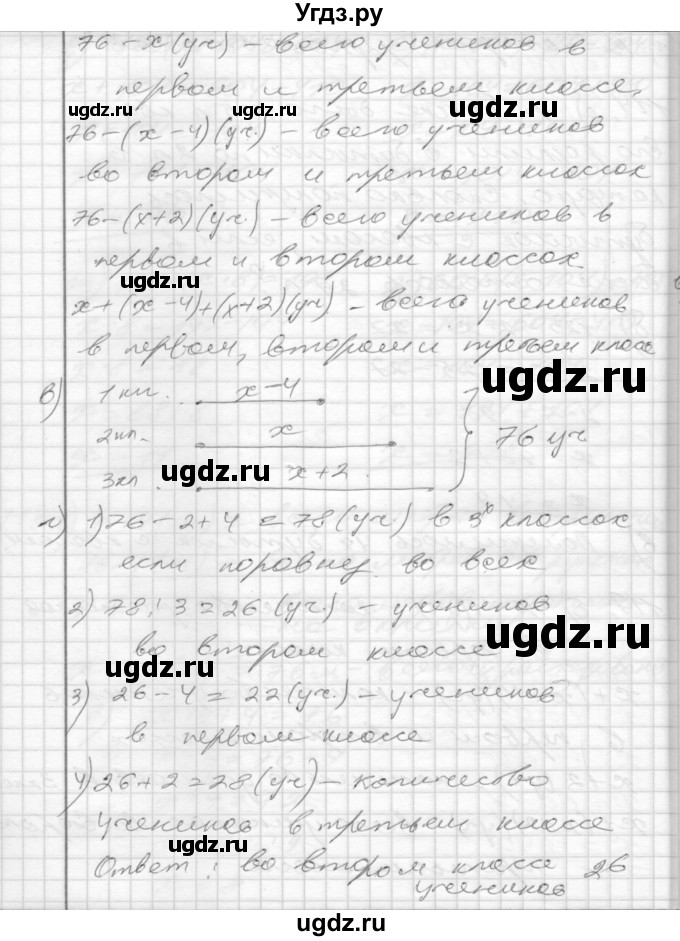 Угдз.ру
76 - x (уч) - всего учеников в
первом и третьем классе,
ugdz.ru ugdz.ru ugdz.ru
76 - (x - 4) (уч.) - всего учеников
во втором и третьем классах
76 - (x + 2) (уч.) - всего учеников в
первом и втором классах
ugdz.ru
x + (x - 4) + (x + 2) (уч) - всего учеников
в первом, втором и третьем класс
в) 1 кл. x - 4
ugdz.ru
2 кл. x 76 уч
3 кл. x + 2
ugdz.ru
г) 1) 76 - 2 + 4 = 78 (уч.) в 3х классах
если поровну во всех
2) 78 : 3 = 26 (уч.) - учеников
ugdz.ru
во втором классе
ugdz.ru
3) 26 - 4 = 22 (уч.) - учеников
в первом классе
4) 26 + 2 = 28 (уч) - количество
учеников в третьем классе
Ответ: во втором классе 26
учеников
ugdz.ru